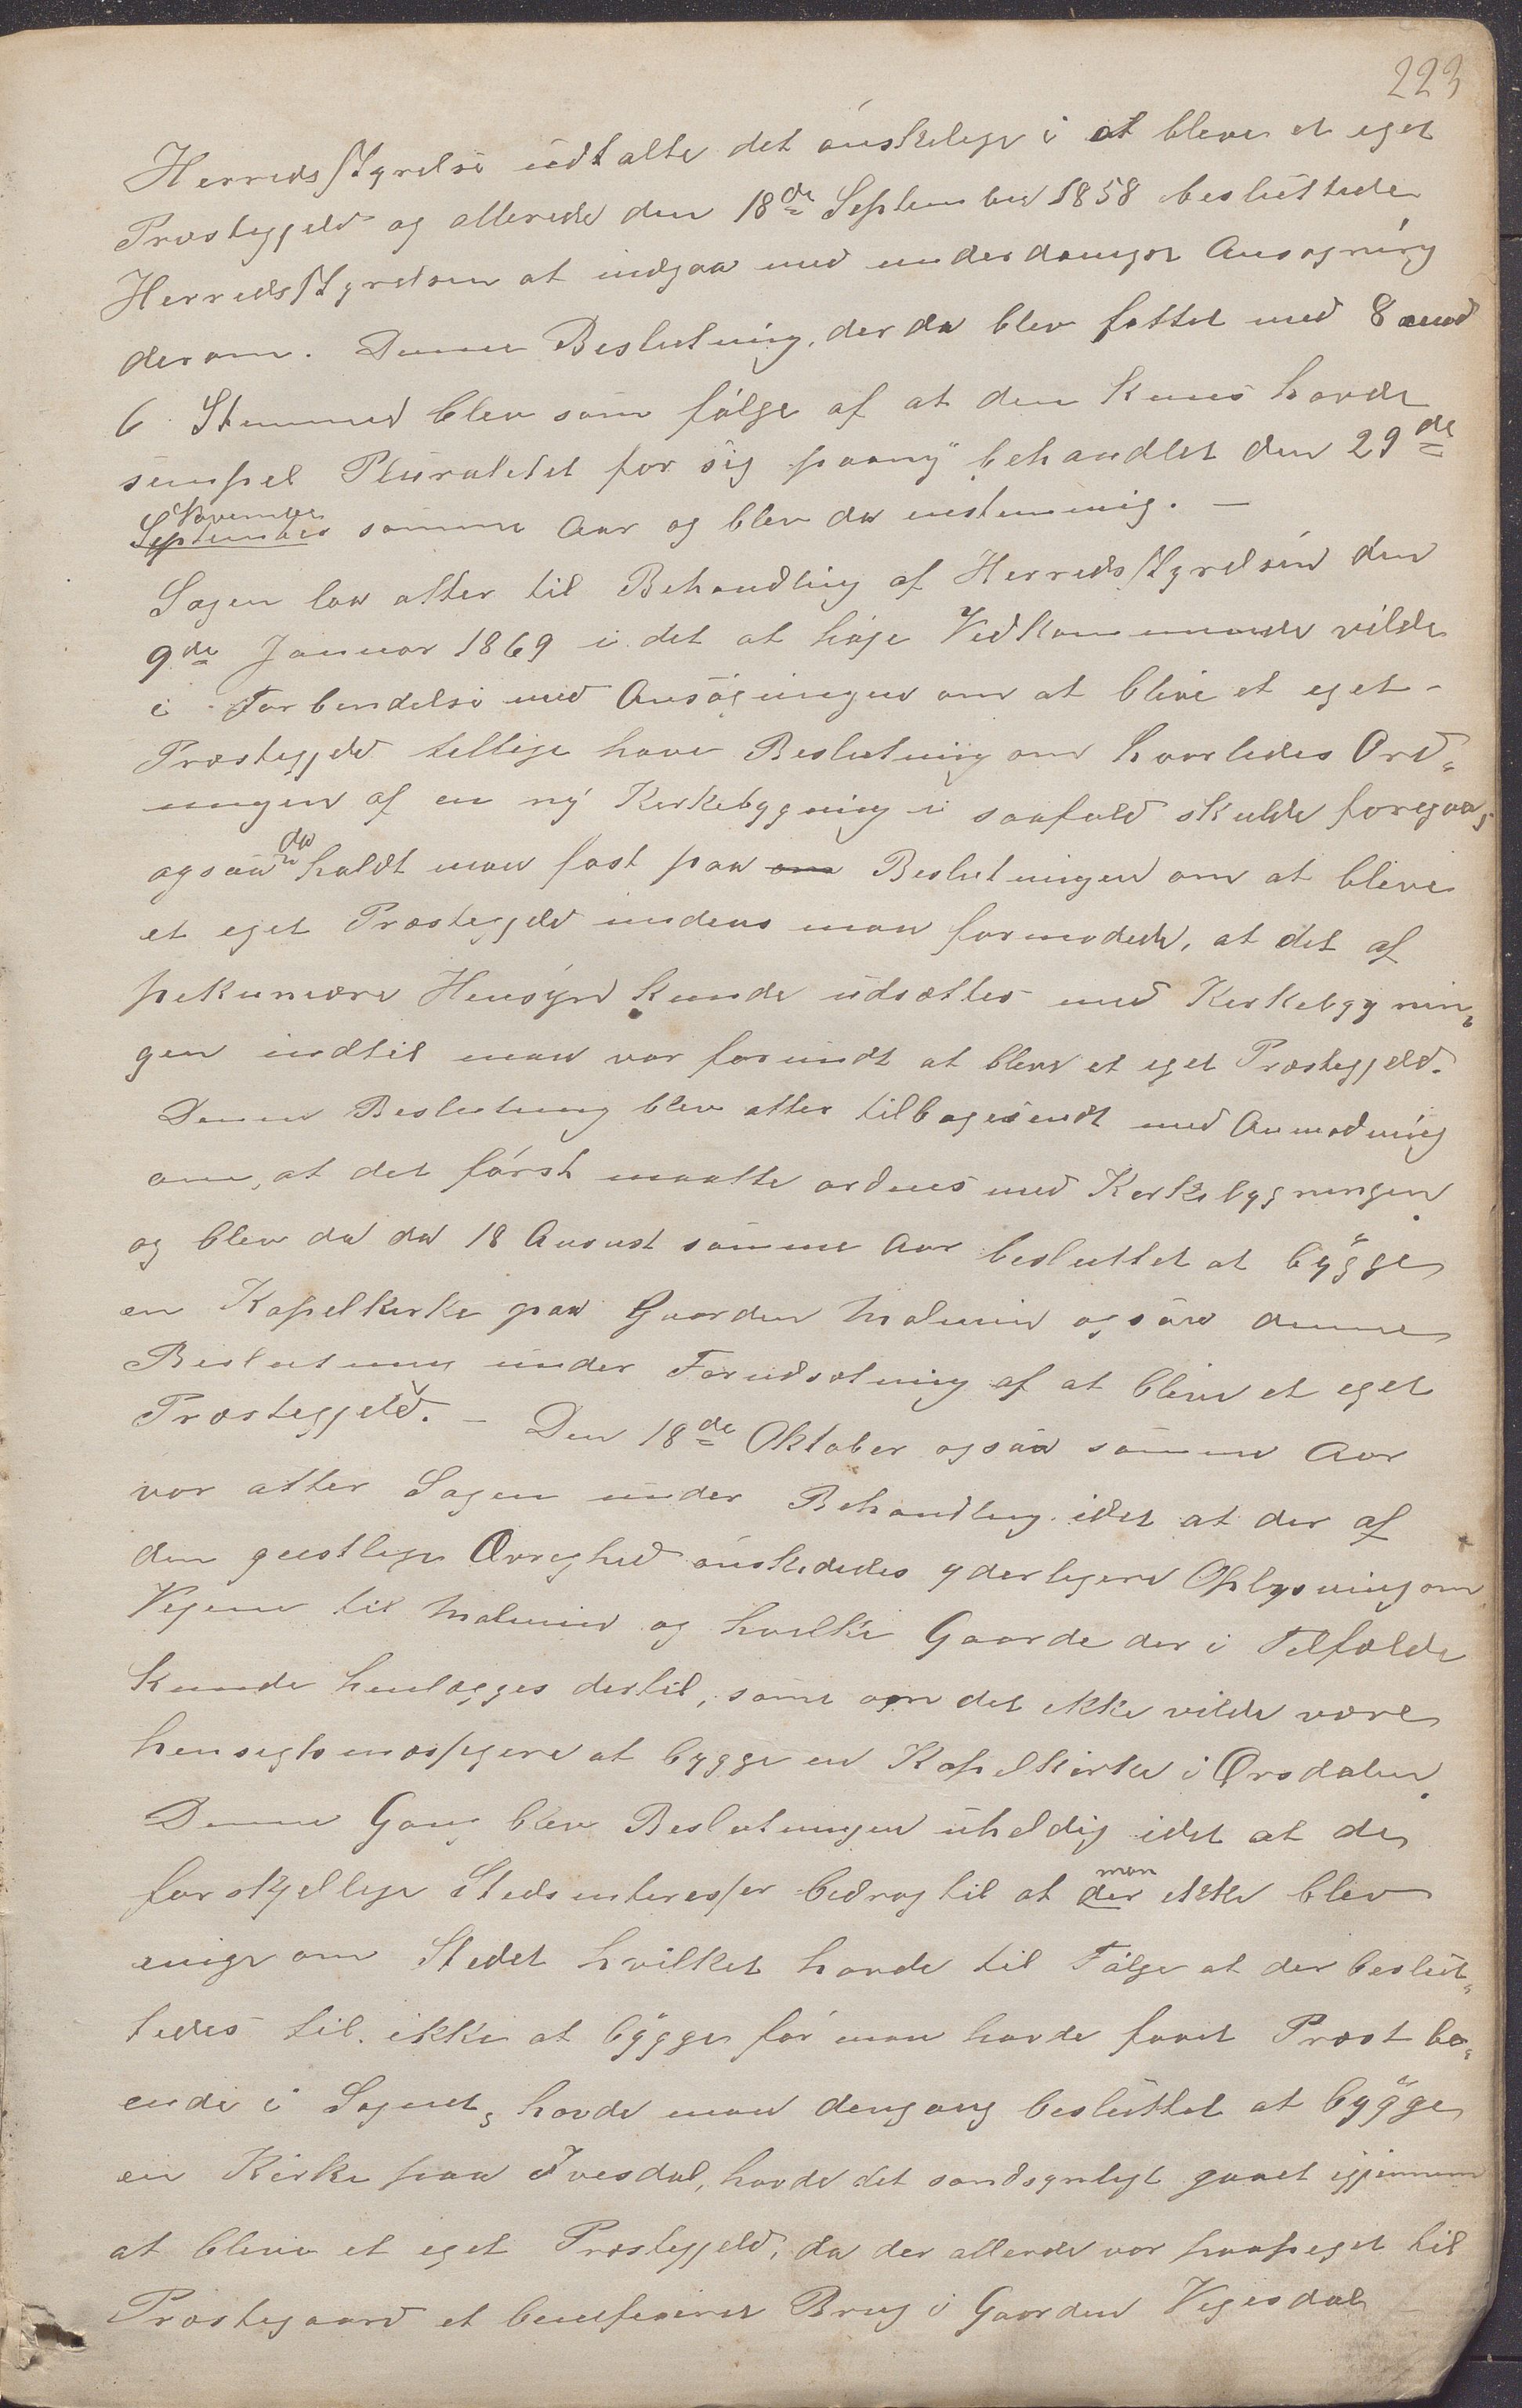 223
Herredsstyrelse udtalte det ønskelige i at blive et eget
Præstegjeld og allerede den 18de September 1858 besluttede
Herredsstyrelsen at indgaa med underdanigst Ansøgning
derom. Denne Beslutning, der da blev fattet med 8 mod
6 Stemmer blev som følge af at den kuns havde
simpel Pluralitet for sig paany behandlet den 29de
November
September samme Aar og blev da enstemmig. –
Sagen laa atter til Behandling af Herredsstyrelsen den
9de Januar 1869 i det at høje Vedkommende vilde
i Forbindelse med Ansøgningen om at blive et eget
Præstegjeld tillige have Beslutning om hvorledes Ord-
ningen af en ny Kirkebygning i saafald skulde foregaa,
da
ogsaa holdt man fast paa om Beslutningen om at blive
et eget Præstegjeld indens man formodede, at det af
pekuniære Hensyn kunde udsættes med Kirkebygnin-
gen indtil man var forundt at blive et eget Præstegjeld.
Denne Beslutning blev atter tilbagesendt med Anmodning
om, at det først maatte ordnes med Kirkebygningen
og blev da da 18 August samme Aar besluttet at bygge
en Kapelkirke paa Gaarden Malmin ogsaa denne
Beslutning under Forudsætning af at blive et eget
Præstegjeld. – Den 18de Oktober ogsaa samme Aar
var atter Sagen under Behandling idet at der af
den geistlige Øvrighed ønskedes yderligere Oplysning om
Vejene til Malmin og hvilke Gaarde der i Tilfælde
kunde henlægges dertil, samt om det ikke vilde være
hensigtsmæssigere at bygge en Kapelkirke i Ørsdalen.
Denne Gang blev Beslutningen uheldig idet at de
forskjellige Stedsinteresser bedrog til at der ikke blev
man
enige om Stedet hvilket havde til Følge at der beslut-
tedes til ikke at bygge før man havde faaet Præst bo-
ende i Sognet, havde man dengang besluttet at bygge
en Kirke paa Ivesdal, havde det sandsynligt gaaet igjennem
at blive et eget Præstegjeld, da der allerede var paapeget til
Præstegaard et beneficeret Brug i Gaarden Vegesdal